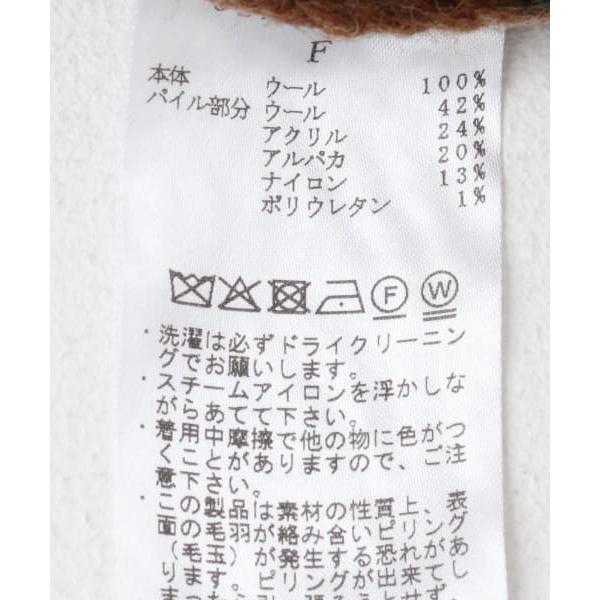 F
本体 ウール 100%
パイル部分 ウール 42%
アクリル 24%
アルパカ 20%
ナイロン 13%
ポリウレタン 1%
F W
・洗濯は必ずドライクリーニン
グでお願いします。
・スチームアイロンを浮かしな
がらあてて下さい。
・着用中摩擦で他の物に色がつ
くことがありますので、ご注
意下さい。
・この製品は素材の性質上、表
面の毛羽が絡み合いピリング
(毛玉)が発生する恐れがあ
ります。ピリングが出来て